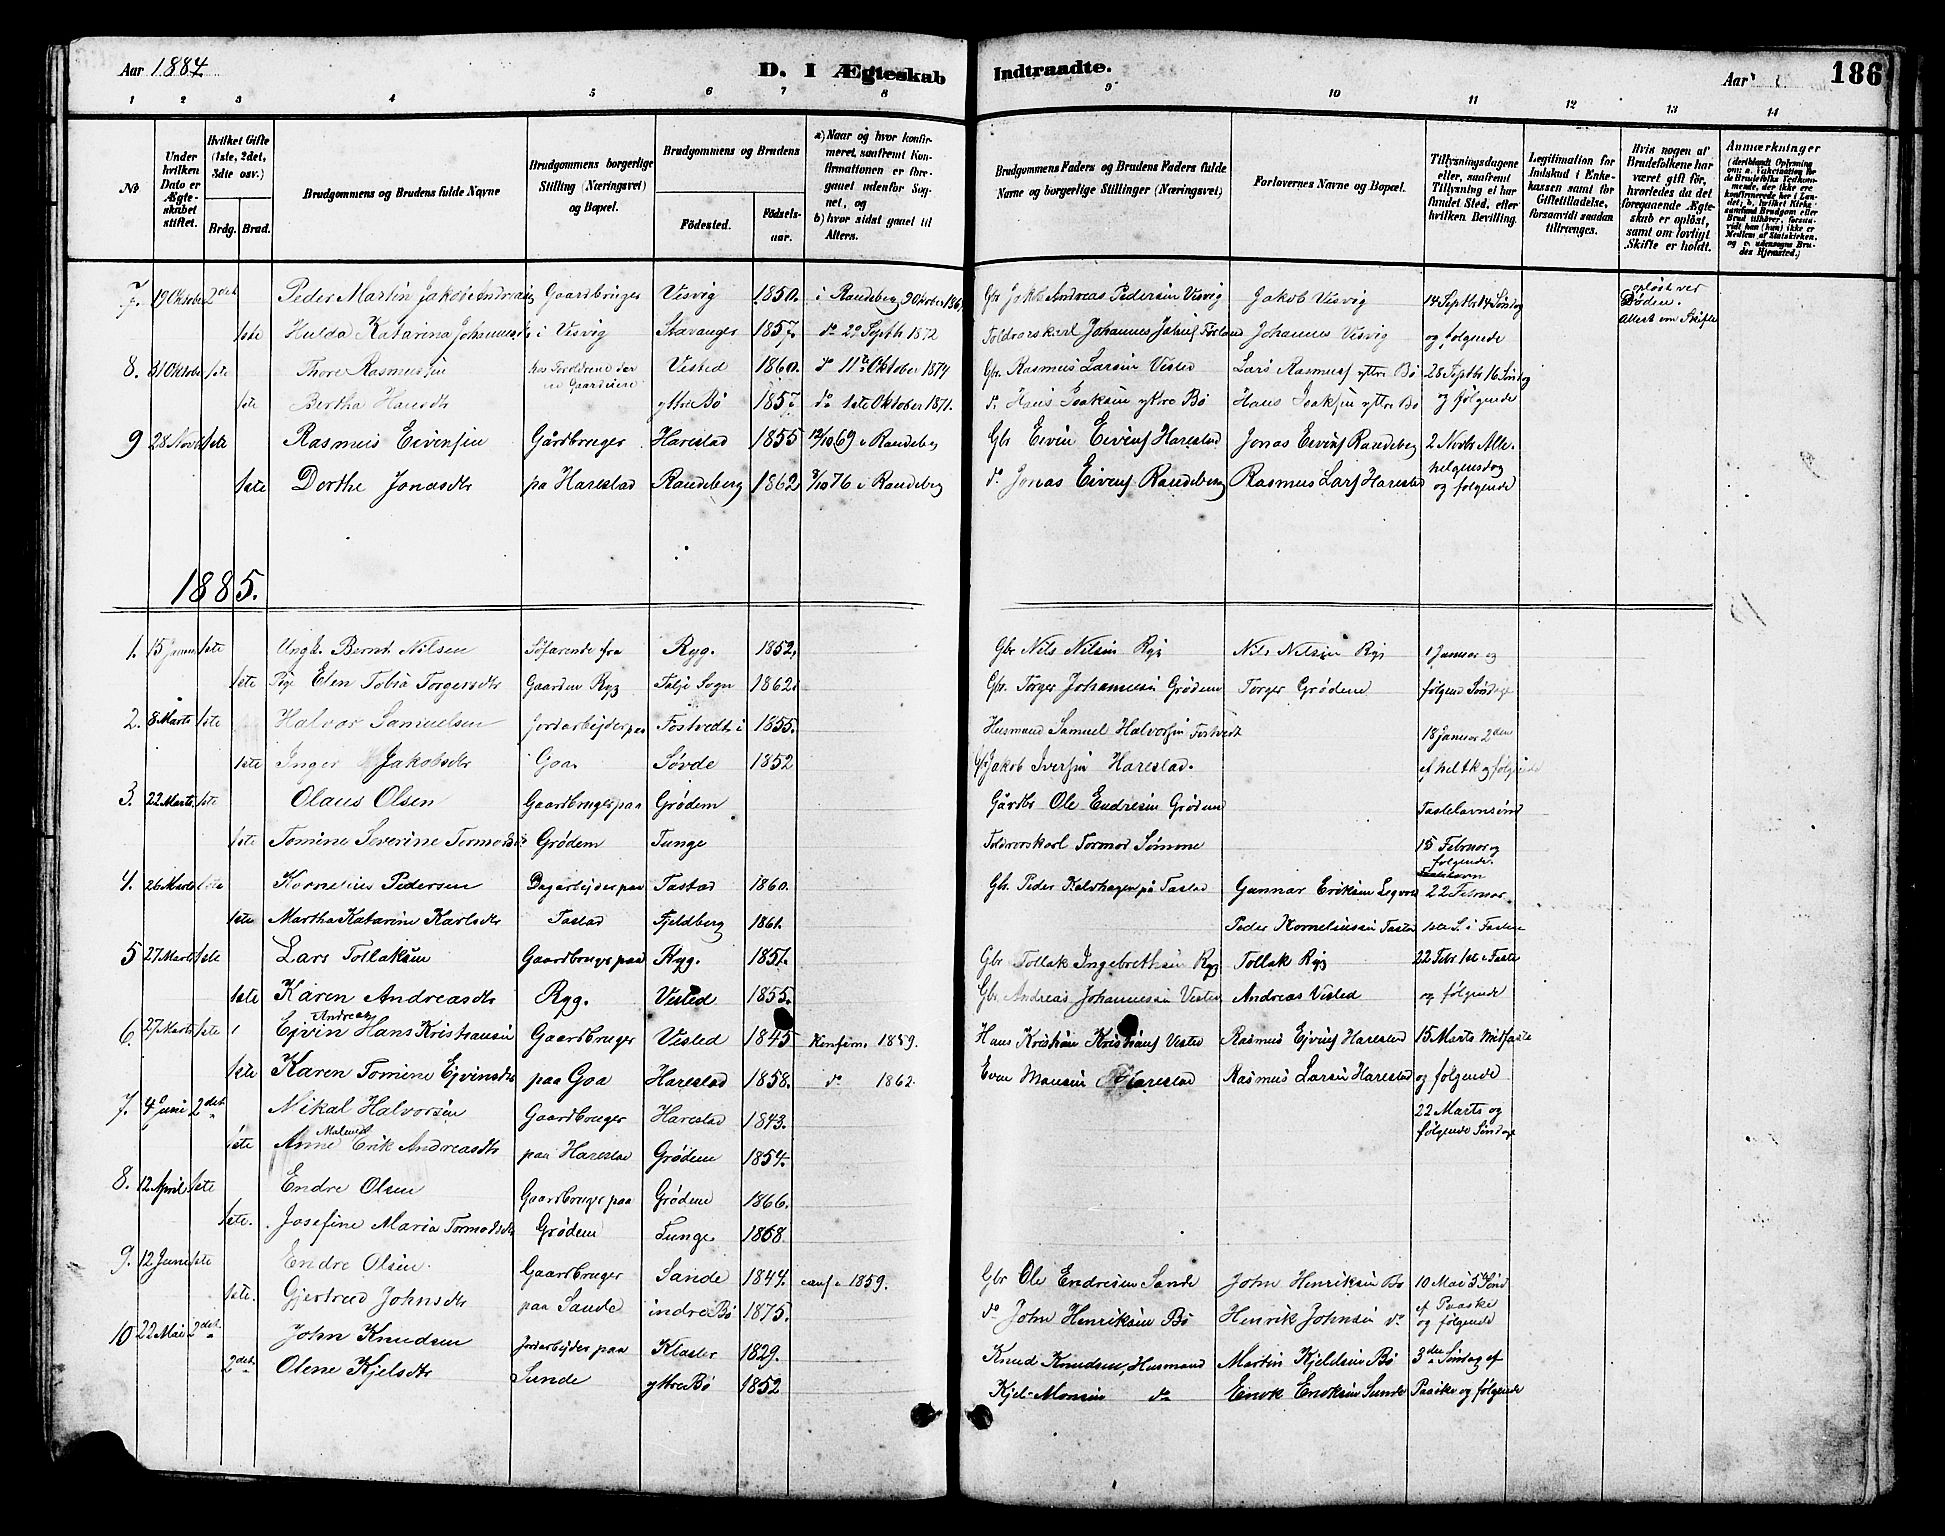 Aar 1884
D. I Ægteskab Indtraadte.
Aar
186
1 2 3 4 5 6 7 8 9 10 11 12 13 14
No
Under hvilken Dato er Ægteskabet stiftet.
Hvilket Gifte (1ste, 2det, 3dte osv.)
Brdg. Brud.
Brudgommens og Brudens fulde Navne
Brudgommens borgerlige Stilling (Næringsvei) og Bopæl.
Brudgommens og Brudens
Fødested.
Fødselsaar.
a) Naar og hvor konfirmeret, saafremt Konfirmationen er foregaaet udenfor Sognet, og
b) hvor sidst gaaet til Alters.
Brudgommens Faders og Brudens Faders fulde Navne og borgerlige Stillinger (Næringsvei)
Forlovernes Navne og Bopæl.
Tillysningsdagene eller, saafremt Tillysning ei har fundet Sted, efter hvilken Bevilling.
Legitimation for Indskud i Enkekassen samt for Giftetilladelse, forsaavidt saadan tiltrænges.
Hvis nogen af Brudefolkene har været gift før, hvorledes da det foregaaende Ægteskab er opløst, samt om lovligt Skifte er holdt.
Anmærkninger
7. 19 Oktober 2det Peder Martin Jakob Andreas Gaardbruger Visvig 1850. i Randeberg Oktober Gbr Jakob Andreas Pedersen Visvig Jakob Visvig 14 Septbr 14 Søndag opløst ved Døden.
1ste Hulda Katarina Johannes i Visvig Stavanger 1857. do 20 Septb 1872 Toldrorskarl Johannes Johnsf Førland Johannes Visvig og følgende Attest om Skifte
8. 31 Oktober 1ste Thore Rasmussen hos Forældrene der Visted 1860. do 11te Oktober 1874 Gbr. Rasmus Larsen Visted Lars Rasmusf yttre Bø 28 Septbr 16 Søndag
1ste Bertha Hansdtr yttre Bø 1857. do 1ste Oktober 1871. do Hans Isaksen yttre Bø Hans Isaksen yttre Bø og følgende
9 28 Novb 1ste Rasmus Eivensen Gårdbruger Harestad 1855 12/10 69 i Randeberg Gbr Eivin Eivensf Harestad Jonas Eivensf Randeberg 2 Novbr Alle-
helgensdag
1ste Dorthe Jonasdtr paa Harestad Randeberg 1862 8/10 76 i Randeberg do Jonas Eivensf Randeberg Rasmus Larsf Harestad og følgende
1885.
1. 15 Januar 1ste Ungk. Bernt Nilsen Søfarende fra Ryg. 1852. Gbr Nils Nilsen Ryg Nils Nilsen Ryg 1 Januar og
1ste Pige Elen Tobia Torgersdtr Gaarden Ryg Talje Sogn 1862. Gbr. Torger Johannesen Grødem Torger Grødem følgende Søndage
2. 8 Marts 1ste Halvor Samuelsen Jordarbejder paa Fostvedt i 1855. Husmand Samuel Halvorsen Fostvedt 18 Januar 2den
1ste Inger Jakobsdtr Goa Søvde 1852 Gbr Jakob Iversen Harestad. ef heltk og følgende
3. 22 Marts 1ste Olaus Olsen Gaardbruger paa Grødem Gårdbr Ole Endresen Grødem Fastelavnsønd
1ste Tomine Severine Tormodsdtr Grødem Tunge Toldrorskarl Tormod Sømme 15 Februar og
følgende.
4. 26 Marts 1ste Kornelius Pedersen Dagarbejder paa Tastad 1860. Gbr. Peder Kalvhagen på Tastad Gunnar Eriksen 22 Februar
1ste Martha Katarine Karlsdtr Tastad Fjeldberg 1861. Peder Korneliussen Tastad 1ste S. i Fasten
5 27 Marts 1ste Lars Tollaksen Gaardbruger paa Ryg. 1851. Gbr Tollak Ingebrethsen Ryg Tollak Ryg 22 Febr 1ste i Faste
1ste Karen Andreasdtr Ryg. Visted 1855. Gbr. Andreas Johannesen Visted Andreas Visted og følgende
Andreas
6. 27 Marts 1ste Ejvin Hans Kristiansen Gaardbruger Visted 1845 Konfirm. 1859. Hans Kristian Kristiansf Visted Rasmus Ejvinsf Harestad 15 Marts Midfaste
1ste Karen Tomine Ejvinsdtr paa Goa Harestad 1858. do 1862. Even Monsen Harestad Rasmus Larsen Harestad og følgende
7. 4 Juni 2det Nikal Halvorsen Gaardbruger Harestad 1843. 22 Marts og
Malene
1ste Anne Erik Andreasdtr paa Harestad Grødem 1854. følgende Søndage
8. 12 April 1ste Endre Olsen Gaardbruger paa Grødem 1866.
1ste. Josefine Maria Tormodsdtr Grødem Tunge 1858.
9. 12 Juni 1ste Endre Olsen. Gaardbruger Sande 1844. conf. 1859. Gbr Ole Endresen Sande John Henriksen Bø 10 Mai 5 Sønd
1ste. Gjertrud Johnsdtr paa Sande indre Bø 1875. do John Henriksen Bø Henrik Johnsen do ef Paaske og følgende
10 22 Mai 2det. John Knudsen Jordarbejder paa Kloster 1829. Knud Knudsen, Husmand Martin Kjeldsen Bø 3die Søndag ef
2det Olene Kjelsdtr Sunde yttre Bø 1852 Kjel Monsen do Enok Enoksen Sunde Paaske og følgende